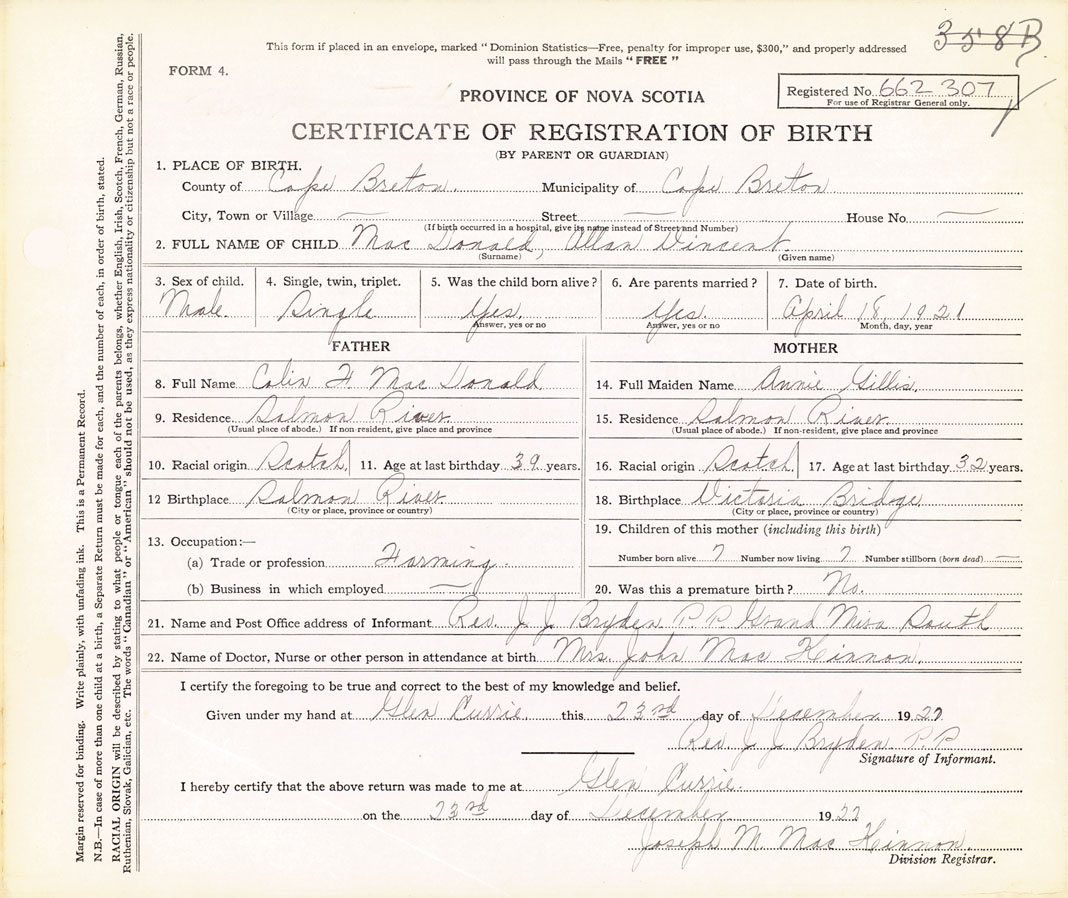 358B
This form if placed in an envelope, marked "Dominion Statistics—Free, penalty for improper use, $300," and properly addressed
will pass through the Mails "FREE"
FORM 4.
Registered No. 662 307
For use of Registrar General only.
PROVINCE OF NOVA SCOTIA
CERTIFICATE OF REGISTRATION OF BIRTH
(BY PARENT OR GUARDIAN)
1. PLACE OF BIRTH.
County of Cape Breton. Municipality of Cape Breton
City, Town or Village — Street — House No. —
(If birth occurred in a hospital, give its name instead of Street and Number)
2. FULL NAME OF CHILD Mac Donald, Allan Vincent.
(Surname) (Given name)
3. Sex of child. 4. Single, twin, triplet. 5. Was the child born alive? 6. Are parents married? 7. Date of birth.
Male. Single Yes. Yes. April 18, 1921
Answer, yes or no Answer, yes or no Month, day, year
FATHER MOTHER
8. Full Name Colin F. Mac Donald 14. Full Maiden Name Annie Gillis.
9. Residence Salmon River. 15. Residence Salmon River.
(Usual place of abode.) If non-resident, give place and province (Usual place of abode.) If non-resident, give place and province
10. Racial origin Scotch 11. Age at last birthday 39 years. 16. Racial origin Scotch 17. Age at last birthday 32 years.
12 Birthplace Salmon River 18. Birthplace Victoria Bridge
(City or place, province or country) (City or place, province or country)
19. Children of this mother (including this birth)
13. Occupation:—
(a) Trade or profession Farming. Number born alive 7 Number now living 7 Number stillborn (born dead) —
(b) Business in which employed — 20. Was this a premature birth? No.
21. Name and Post Office address of Informant Rev. J. J. Bryden P.P. Grand Mira South
22. Name of Doctor, Nurse or other person in attendance at birth Mrs. John Mac Kinnon.
I certify the foregoing to be true and correct to the best of my knowledge and belief.
Given under my hand at Glen Currie. this 23rd day of December 19
Rev J J Bryden P.P.
Signature of Informant.
I hereby certify that the above return was made to me at Glen Currie.
on the 23rd day of December 19
Joseph M. Mac Kinnon.
Division Registrar.
Margin reserved for binding. Write plainly, with unfading ink. This is a Permanent Record.
N.B.—In case of more than one child at a birth, a Separate Return must be made for each, and the number of each, in order of birth, stated.
RACIAL ORIGIN will be described by stating to what people or tongue each of the parents belongs, whether English, Irish, Scotch, French, German, Russian,
Ruthenian, Slovak, Galician, etc. The words "Canadian" or "American" should not be used, as they express nationality or citizenship but not a race or people.